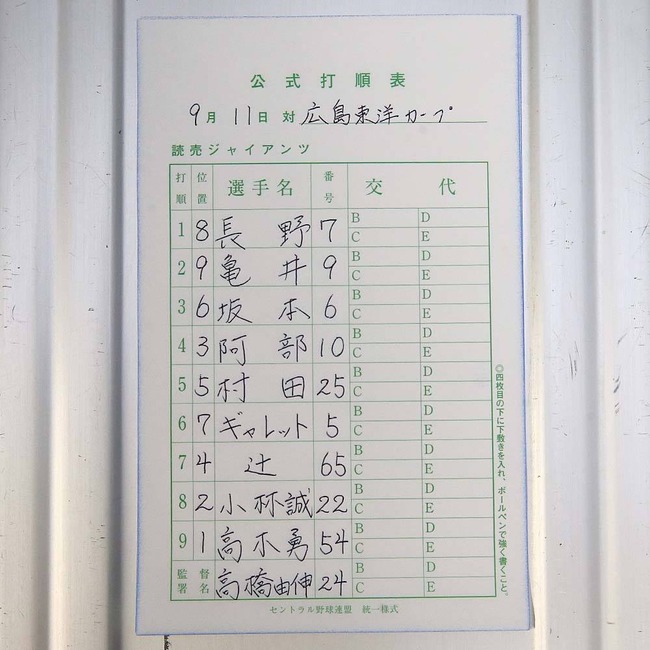 公式打順表
9月11日 対 広島東洋カープ
読売ジャイアンツ
打順 位置 選手名 番号 交代
1 8 長野 7 B D C E
2 9 亀井 9 B D C E
3 6 坂本 6 B D C E
4 3 阿部 10 B D C E
5 5 村田 25 B D C E
6 7 ギャレット 5 B D C E
7 4 辻 65 B D C E
8 2 小林誠 22 B D C E
9 1 高木勇 54 B D C E
監督署名 高橋由伸 24 B D C E
セントラル野球連盟 統一様式
◎四枚目の下に下敷きを入れ、ボールペンで強く書くこと。